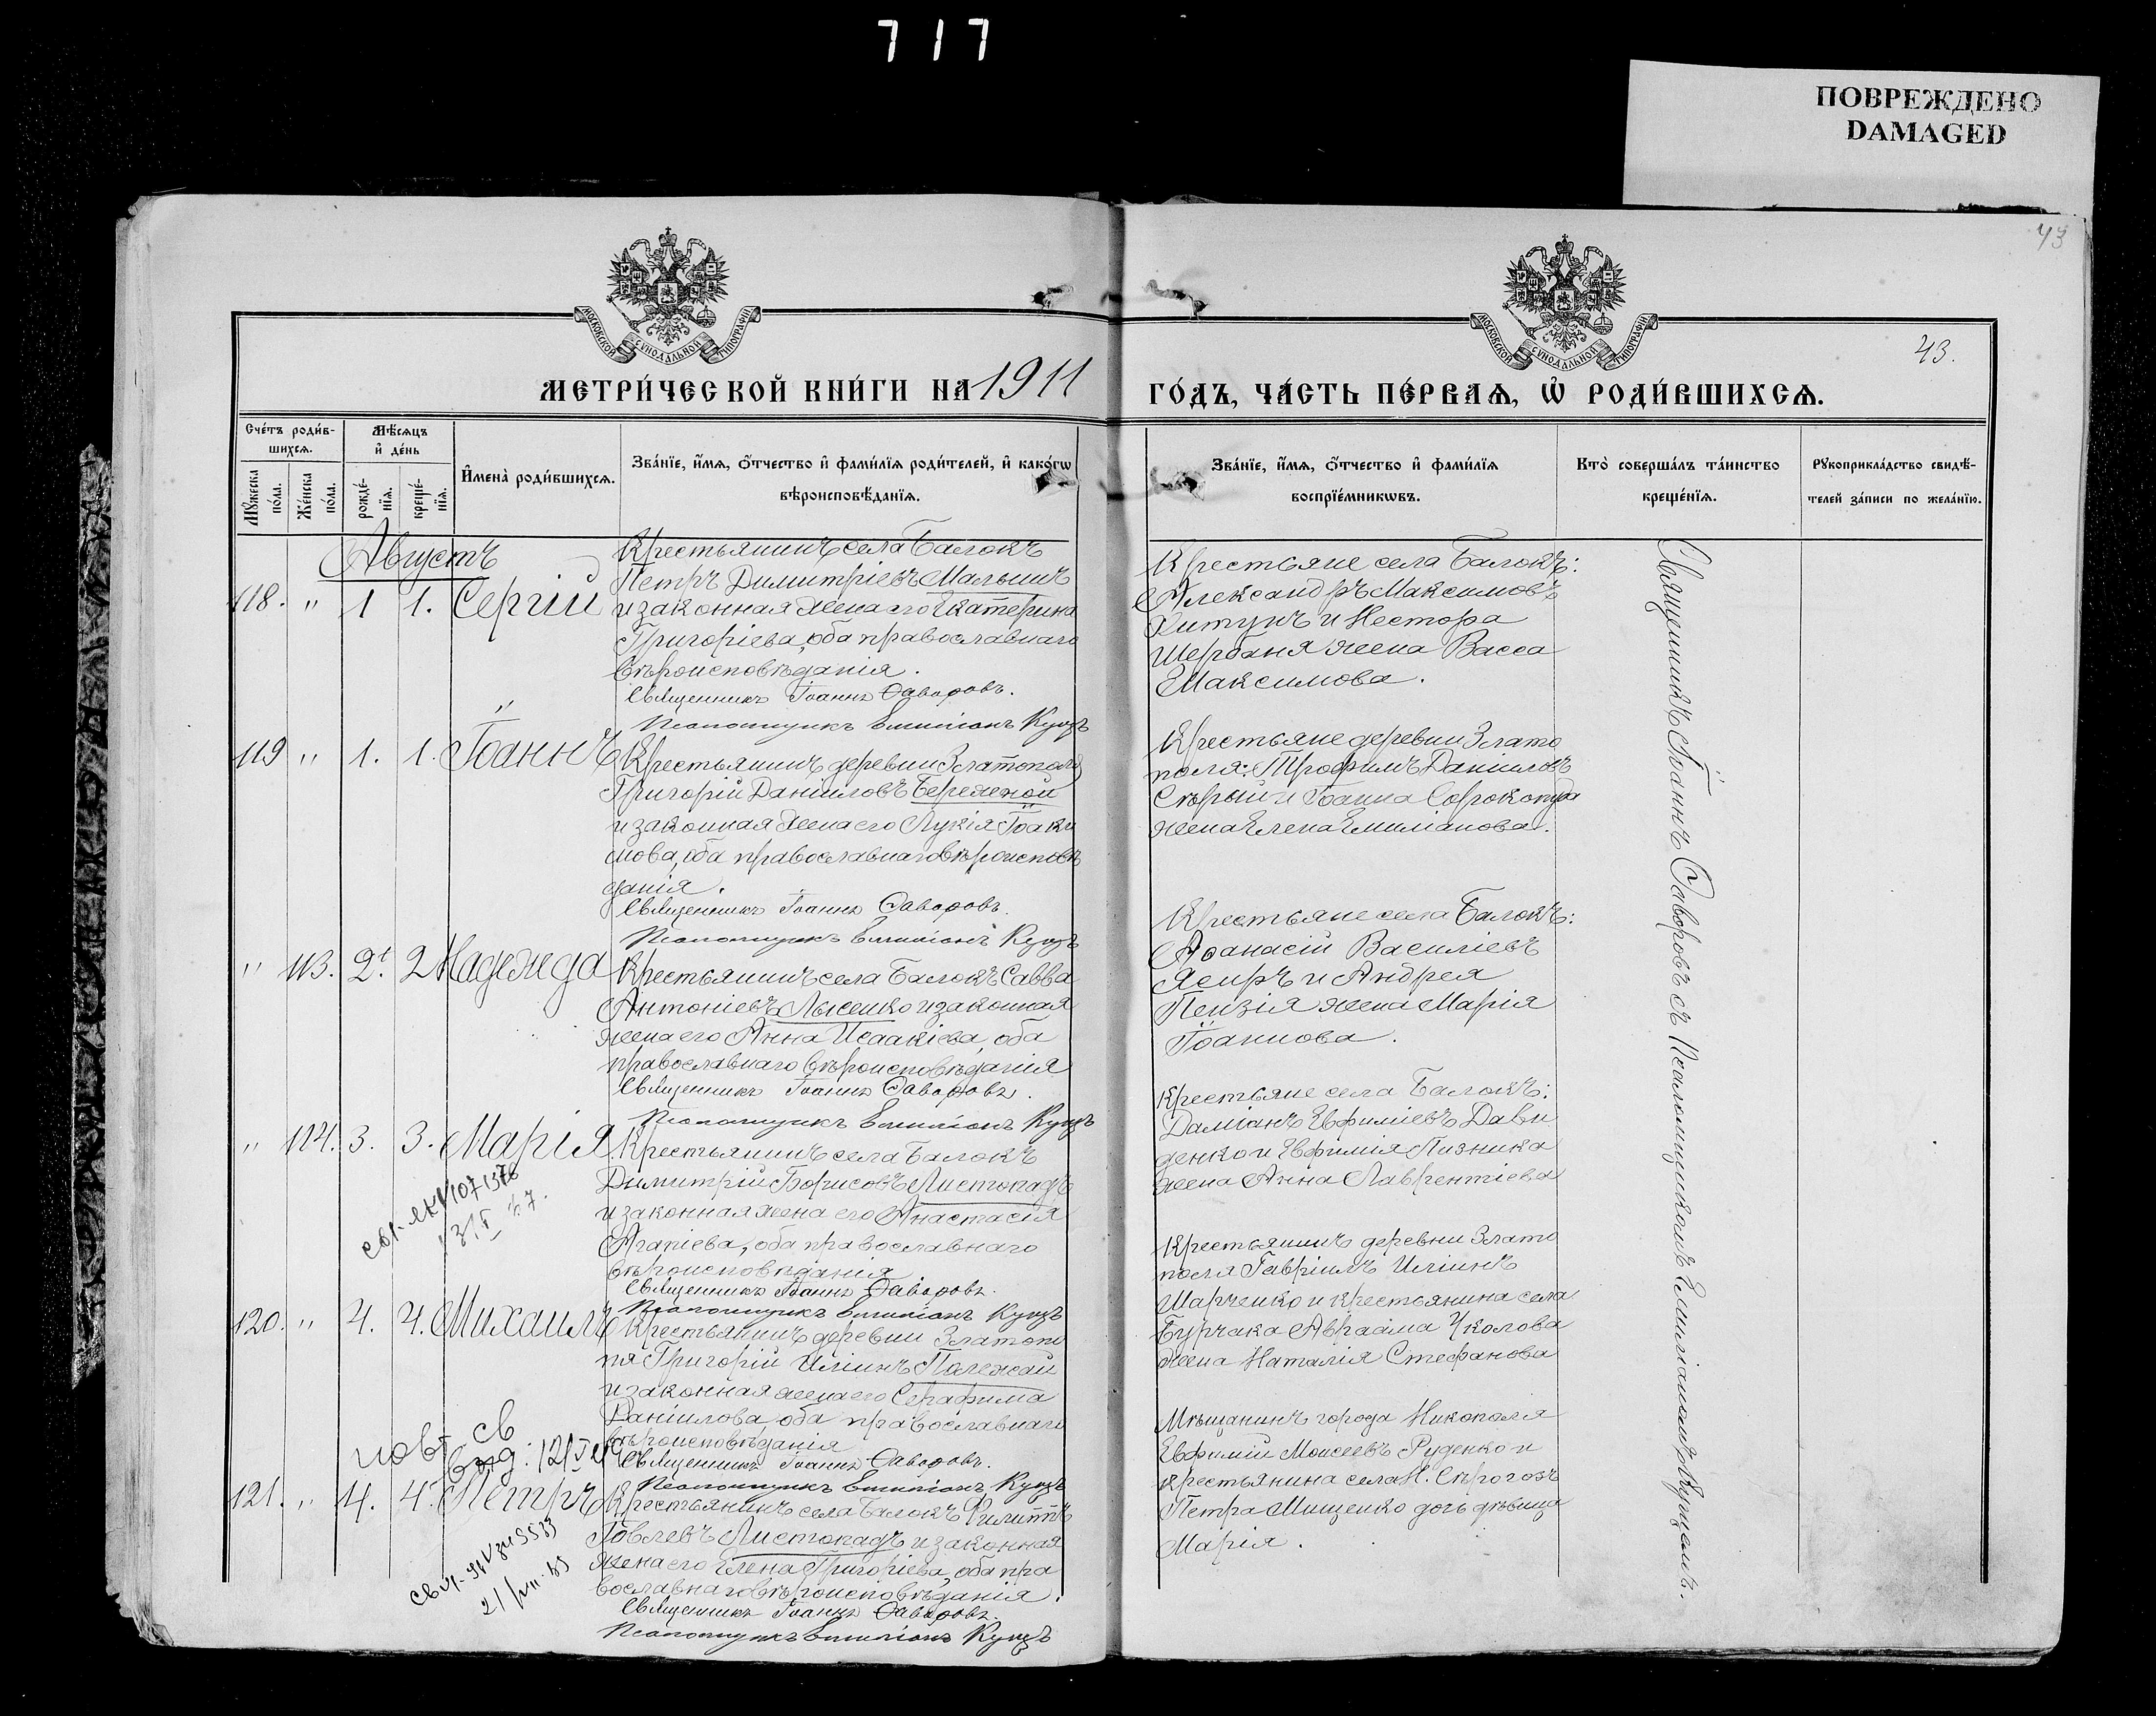 717
ПОВРЕЖДЕНО
DAMAGED
43
МОСКОВСКОЙ СѴНОДАЛЬНОЙ ТИПОГРАФІИ
МОСКОВСКОЙ СѴНОДАЛЬНОЙ ТИПОГРАФІИ
43.
МЕТРИ́ЧЕСКОЙ КНИ́ГИ НА 1911
ГО́ДЪ, ЧА́СТЬ ПЕ́РВАѦ, Ѡ҆ РОДИ́ВШИХСѦ.
Сче́тъ роди́в-
шихсѧ.
Мѣ́сѧцъ
и҆ де́нь
Мꙋ́жеска по́ла.
Же́нска по́ла.
рожде́-нїѧ.
креще́-нїѧ.
И҆мена̀ роди́вшихсѧ.
Зва́нїе, и҆́мѧ, ѻ҆́тчество и҆ фами́лїѧ роди́телей, и҆ како́гѡ
вѣроисповѣ́данїѧ.
Зва́нїе, и҆́мѧ, ѻ҆́тчество и҆ фами́лїѧ
воспрїе́мникѡвъ.
Кто̀ соверша́лъ та́инство
креще́нїѧ.
Рꙋкоприкла́дство свидѣ́-
телей за́писи по жела́нїю.
Августъ
118. " 1 1. Сергій
Крестьянинъ села Балокъ
Петръ Димитріевъ Мальшинъ
и законная жена его Екатерина
Григоріева, оба православнаго
вѣроисповѣданія.
Священникъ Іоаннъ Ѳаворовъ.
Псаломщикъ Емиліанъ Кущъ
Крестьяне села Балокъ:
Александръ Максимовъ
Хитунъ и Нестора
Щербаня жена Васса
Максимова.
119 " 1. 1. Іоаннъ
Крестьянинъ деревни Златополя
Григорій Даниловъ Бережной
и законная жена его Лукія Іоаки
мова, оба православнаго вѣроисповѣ
данія.
Священникъ Іоаннъ Ѳаворовъ.
Псаломщикъ Емиліанъ Кущъ
Крестьяне деревни Злато
поля: Трофимъ Даниловъ
Сѣрый и Іоанна Сорокопуда
жена Елена Емиліанова.
" 113. 2. 2 Надежда
Крестьянинъ села Балокъ Савва
Антоніевъ Лысенко и законная
жена его Анна Исаакіева, оба
православнаго вѣроисповѣданія
Священникъ Іоаннъ Ѳаворовъ.
Псаломщикъ Емиліанъ Кущъ
Крестьяне села Балокъ:
Аѳанасій Василіевъ
Ясиръ и Андрея
Пензія жена Марія
Іоаннова.
" 114. 3. 3. Марія
Крестьянинъ села Балокъ
Димитрій Борисовъ Листопадъ
и законная жена его Анастасія
Агапіева, оба православнаго
вѣроисповѣданія
Священникъ Іоаннъ Ѳаворовъ.
Псаломщикъ Емиліанъ Кущъ
Крестьяне села Балокъ:
Даміанъ Евфиміевъ Дави
денко и Евфимія Пизника
жена Анна Лаврентіева
120. " 4. 4. Михаилъ
Крестьянинъ деревни Златопо
ля Григорій Иліинъ Полежай
и законная жена его Серафима
Даніилова, оба православнаго
вѣроисповѣданія
Священникъ Іоаннъ Ѳаворовъ.
Псаломщикъ Емиліанъ Кущъ
Крестьянинъ деревни Злато
поля Гавріилъ Иліинъ
Шарченко и крестьянина села
Бурчака Авраама Чколова
жена Наталія Стефанова
повт. св
121. " 4. 4. Петръ
Крестьянинъ села Балокъ Филиппъ
Іовлевъ Листопадъ и законная
жена его Елена Григоріева, оба пра
вославнаго вѣроисповѣданія.
Священникъ Іоаннъ Ѳаворовъ.
Псаломщикъ Емиліанъ Кущъ
Мѣщанинъ города Никополя
Евфимій Моисеевъ Руденко и
крестьянина села Н. Сѣрогозъ
Петра Мищенко дочь дѣвица
Марія.
Священникъ Іоаннъ Ѳаворовъ съ Псаломщикомъ Емиліаномъ Кущомъ.